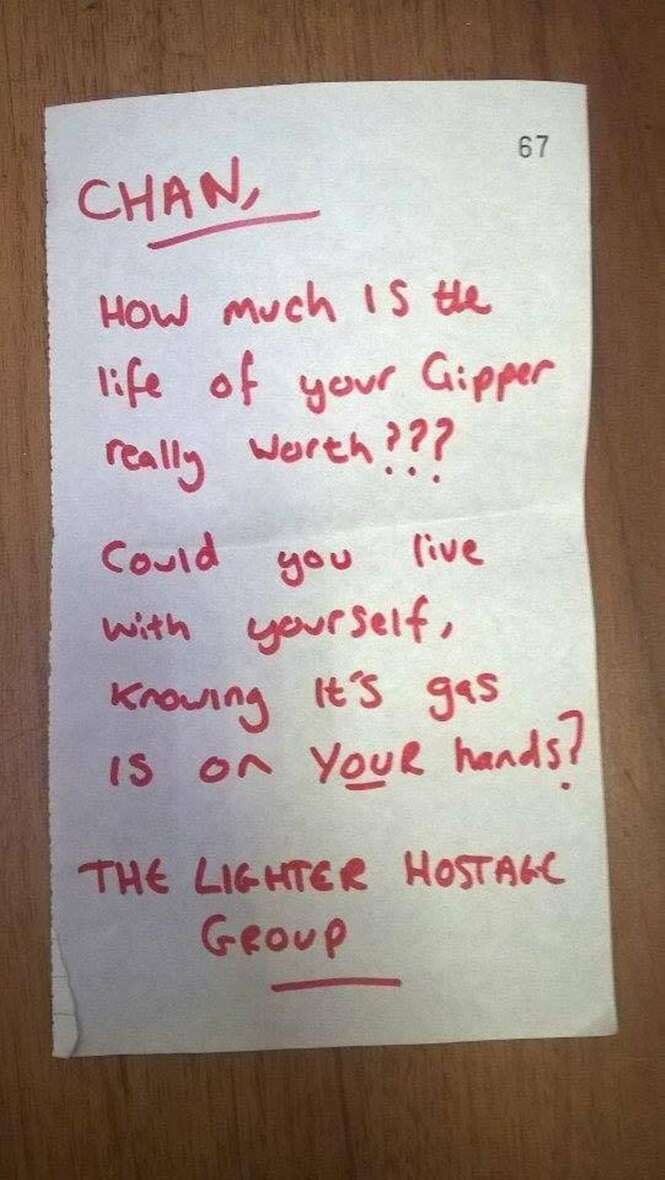 67
CHAN,
HOW much IS the
life of your Gipper
really worth???
Could you live
with yourself,
knowing It's gas
is on YOUR hands?
THE LIGHTER HOSTAGE
GROUP